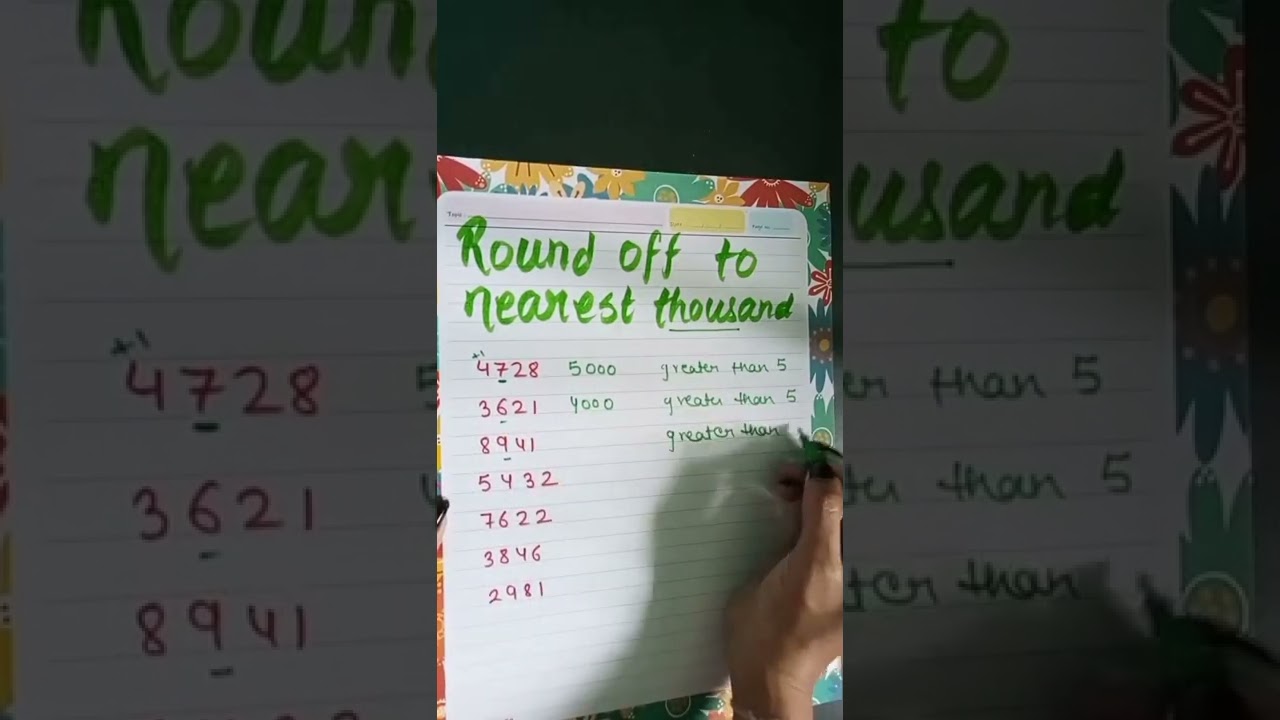 Round off to
nearest thousand
+1
4728 5000 greater than 5
3621 4000 greater than 5
8941 greater than
5432
7622
3846
2981